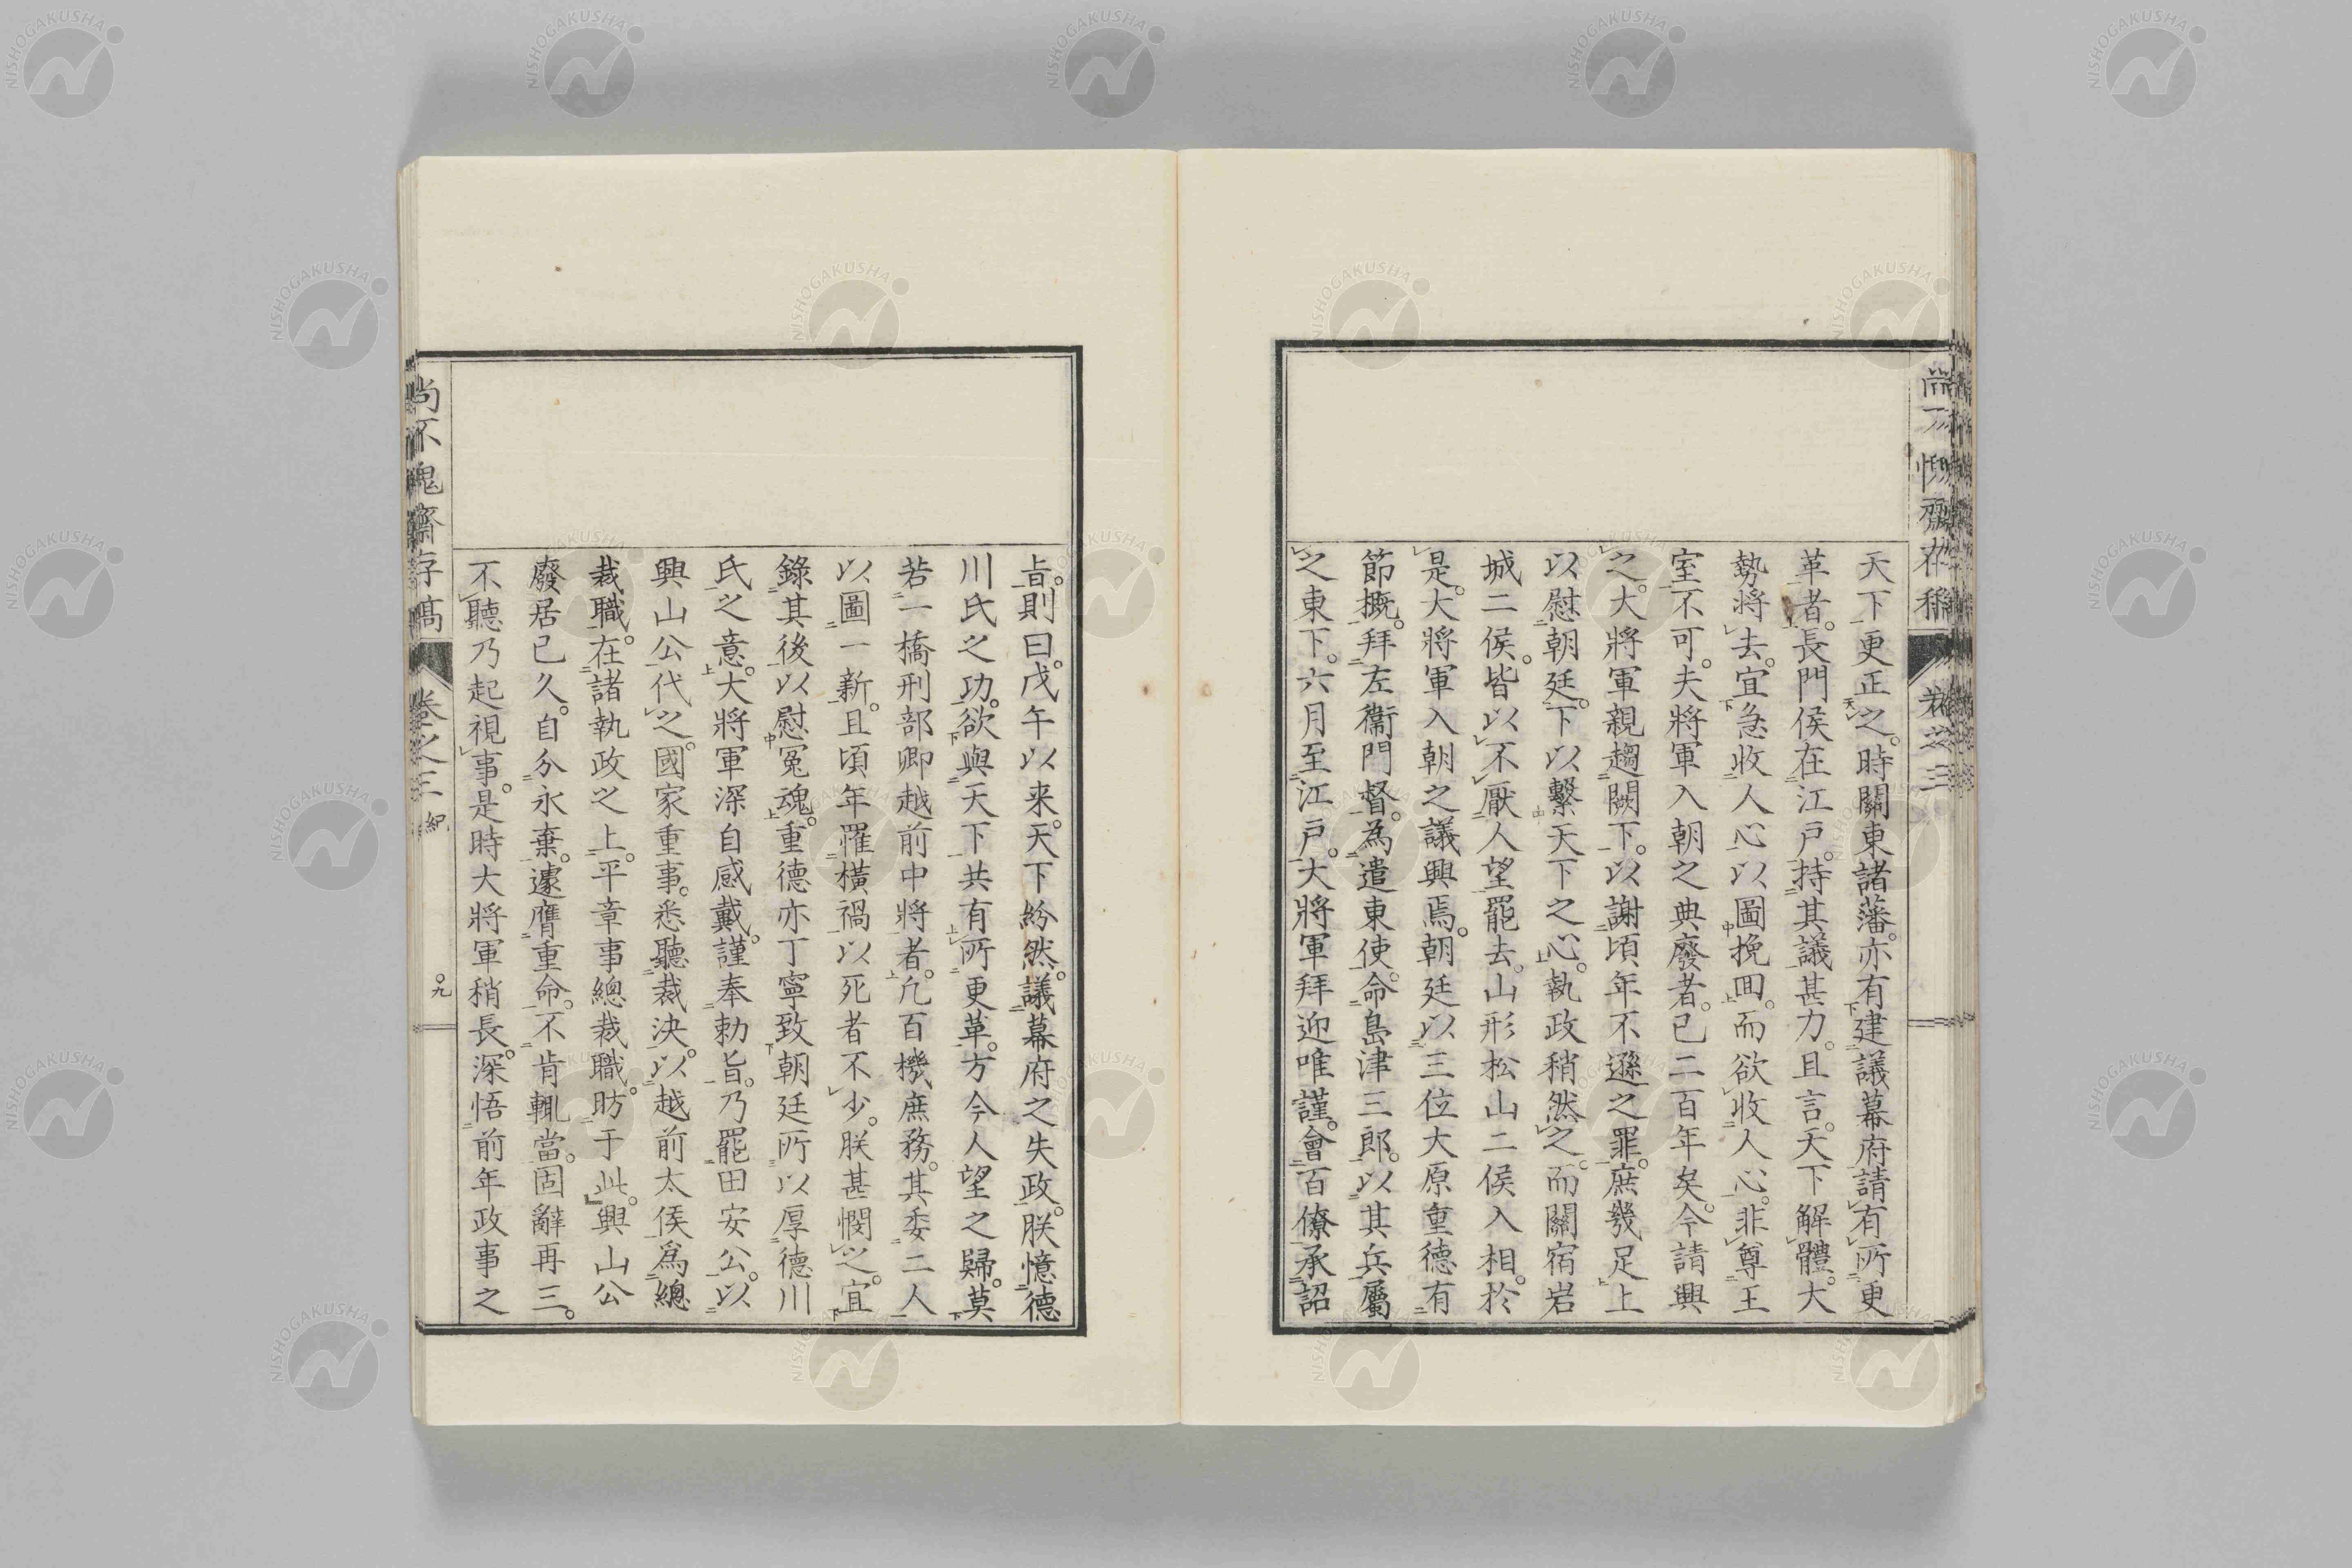 天下更正之。時關東諸藩。亦有建議幕府請有所更
革者。長門侯在江戸。持其議甚力。且言。天下解體。大
勢將去。宜急收人心以圖挽回。而欲收人心。非尊王
室不可。夫將軍入朝之典廢者。已二百年矣。今請興
之。大將軍親趨闕下。以謝頃年不遜之罪。庶幾足上
以慰朝廷。下以繫天下之心。執政稍然之。而關宿岩
城二侯。皆以不厭人望罷去。山形松山二侯入相。於
是。大將軍入朝之議興焉。朝廷以三位大原重德有
節概。拜左衞門督。為遣東使。命島津三郎。以其兵屬
之東下。六月至江戸。大將軍拜迎唯謹。會百僚承詔
旨。則曰。戊午以来。天下紛然。議幕府之失政。朕憶德
川氏之功。欲與天下共有所更革。方今人望之歸。莫
若一橋刑部卿越前中將者。凢百機庶務。其委二人
以圖一新。且頃年罹橫禍以死者不少。朕甚憫之。宜
錄其後以慰冤魂。重德亦丁寧致朝廷所以厚德川
氏之意。大將軍深自感戴。謹奉勅旨。乃罷田安公。以
興山公代之。國家重事。悉聽裁決。以越前太侯爲總
裁職。在諸執政之上。平章事總裁職。昉于此。興山公
廢居已久。自分永棄。遽膺重命。不肯輒當。固辭再三。
不聽乃起視事。是時大將軍稍長。深悟前年政事之
尚不愧齋存稿
卷之三 紀
九